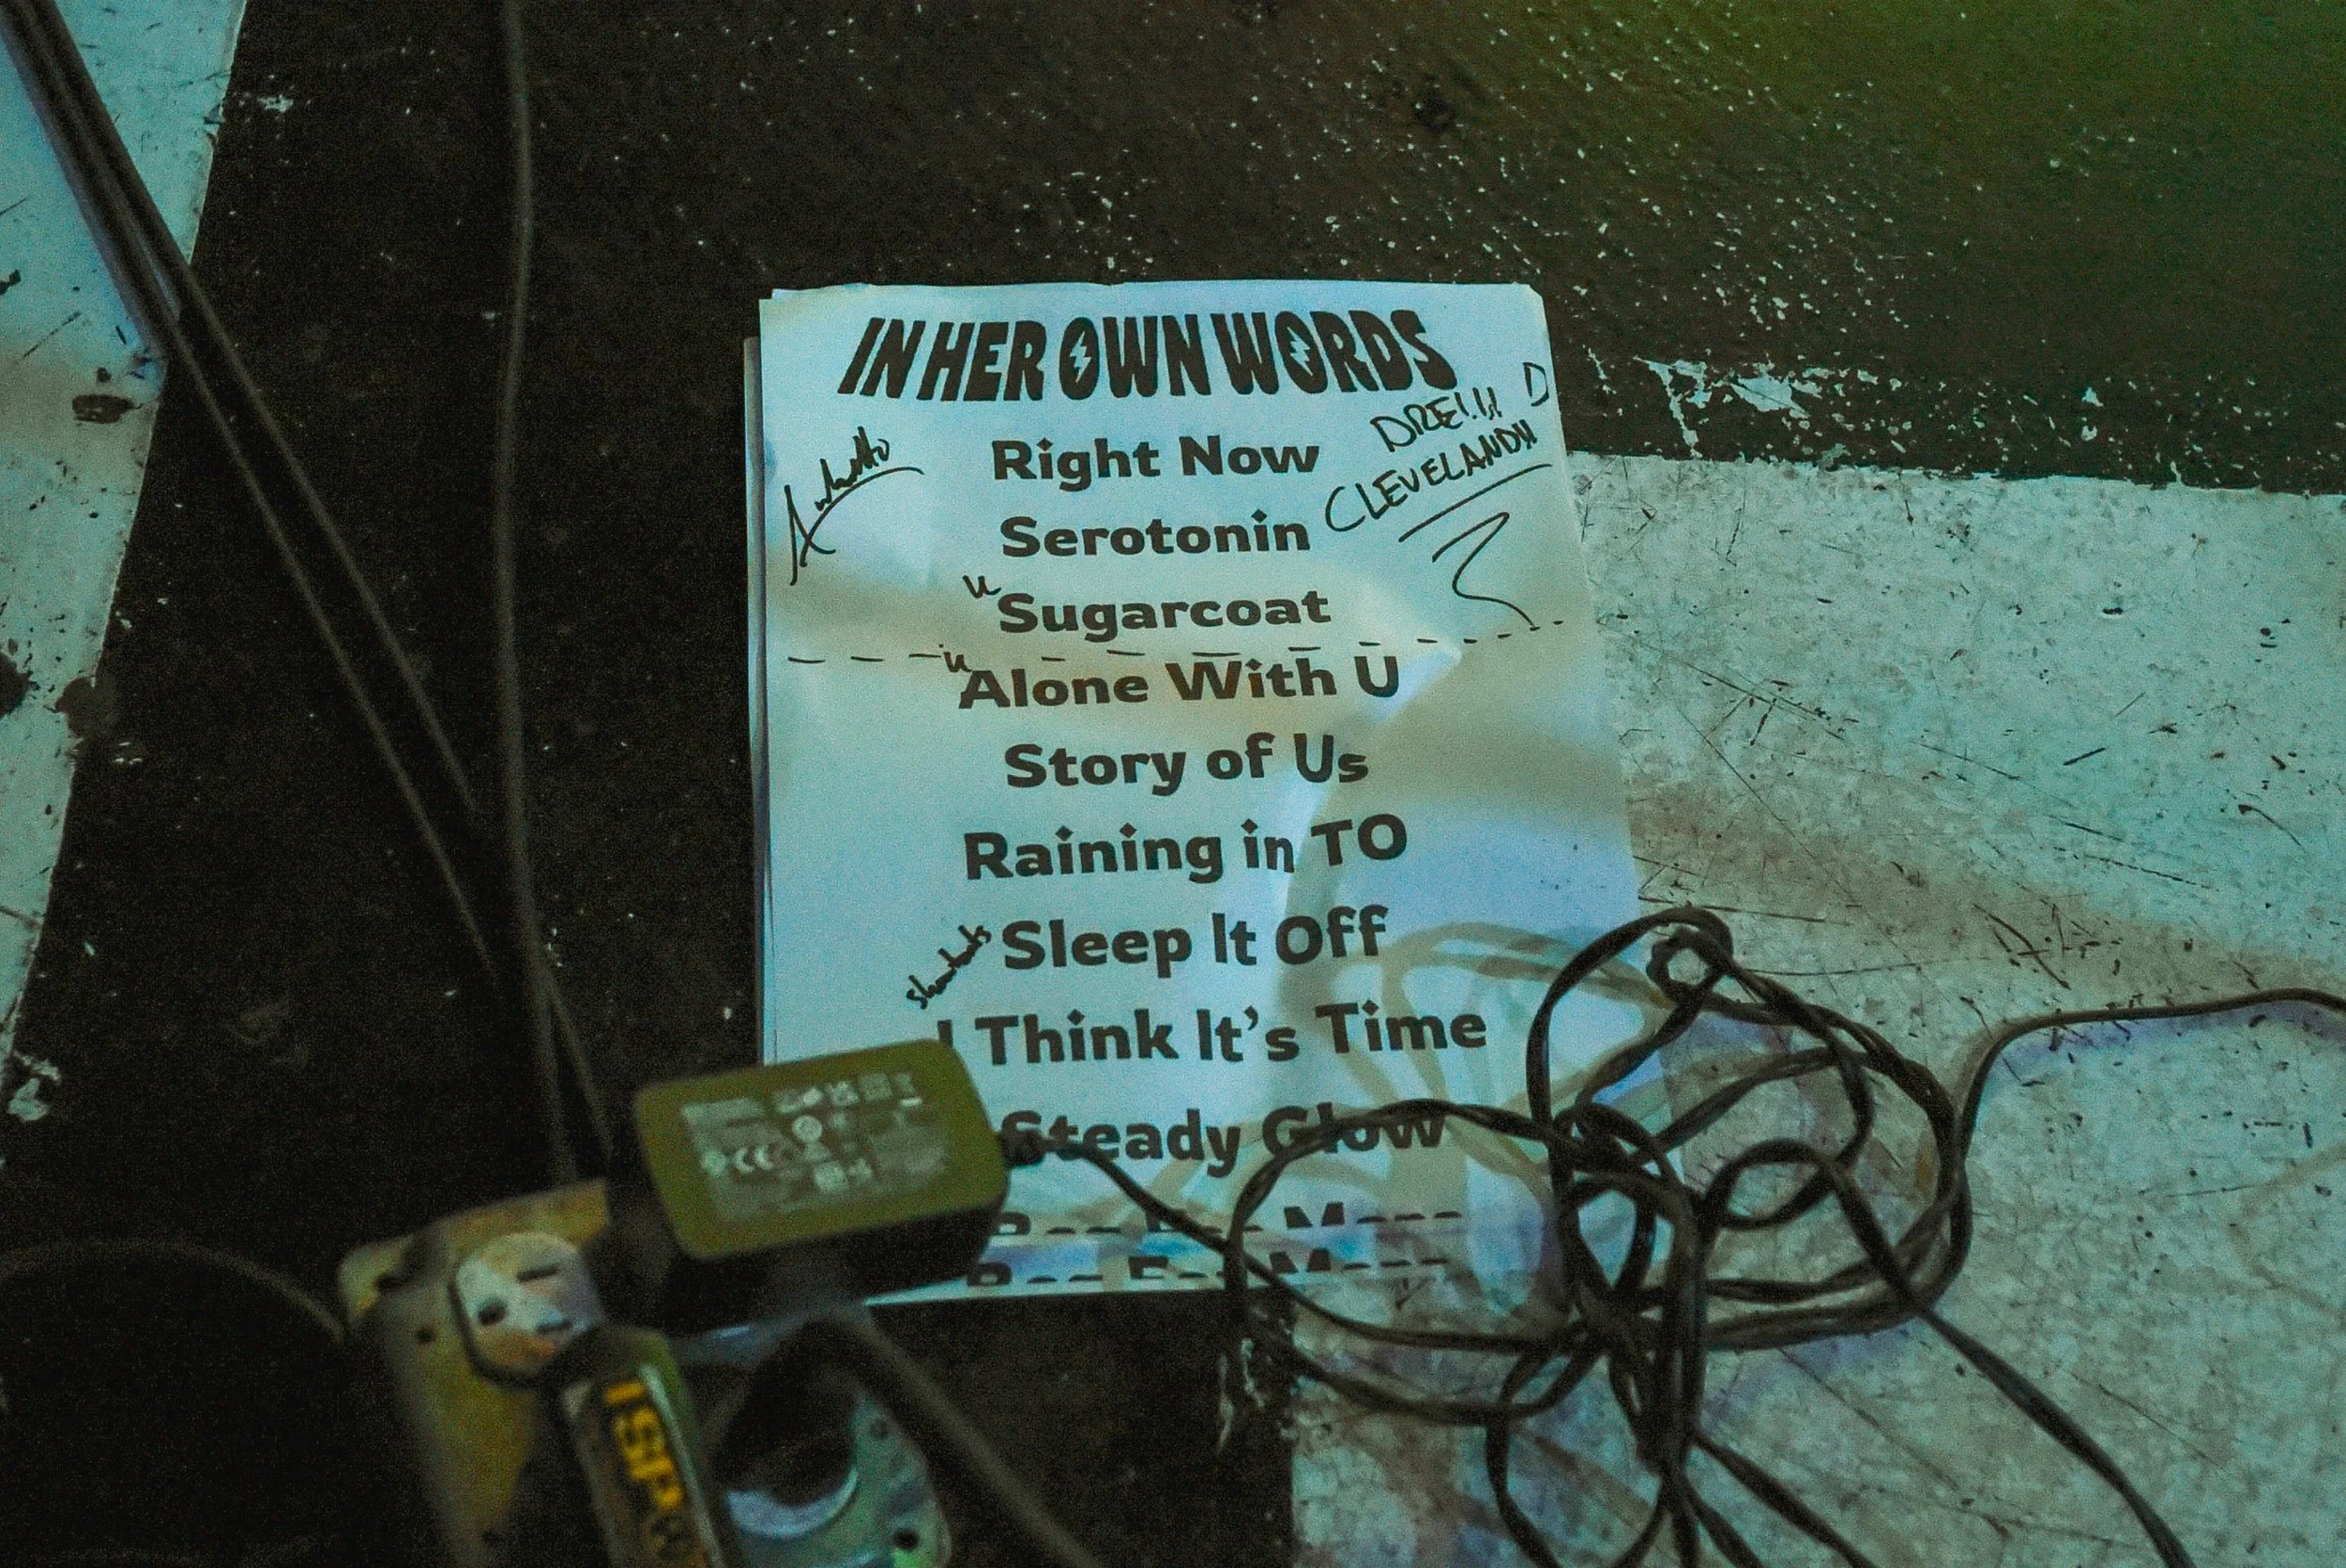 IN HER OWN WORDS
DRE!!!! D
CLEVELAND!!
Right Now
Serotonin
u Sugarcoat
u Alone With U
Story of Us
Raining in TO
Sleep It Off
I Think It's Time
Steady Glow